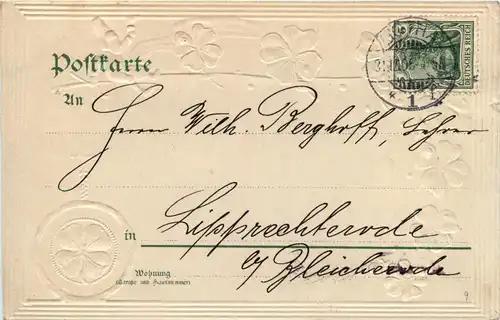 Postkarte
DEUTSCHES REICH
An
Herrn Wilh. Berghoff, Lehrer
1
in
Lipprechterode
b/ Bleicherode
Wohnung
(Straße und Hausnummer)
9